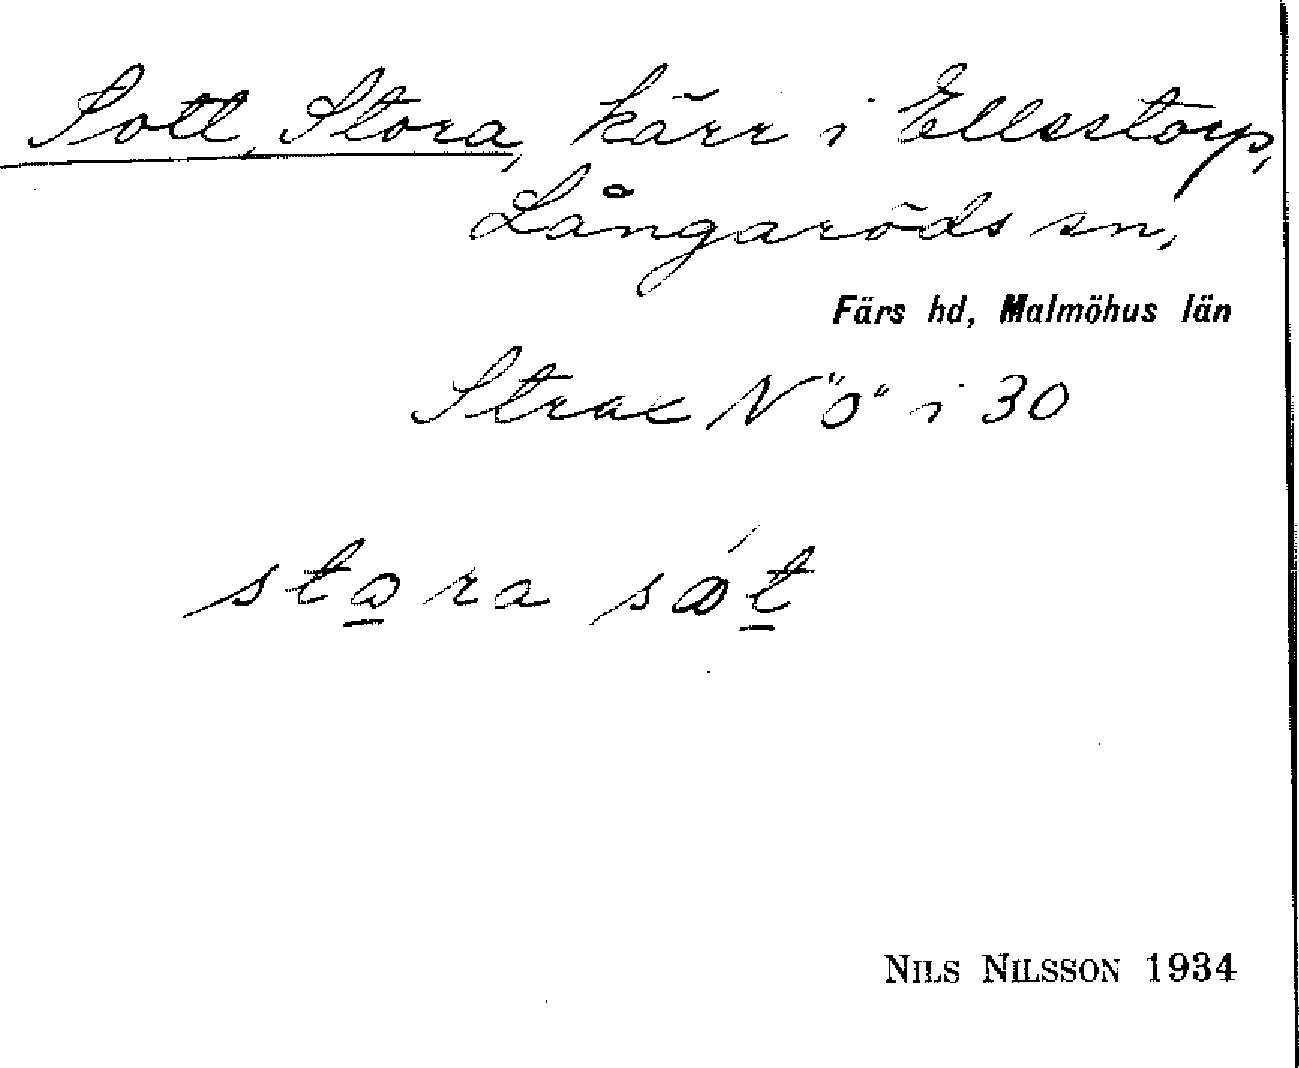 Sott, Stora, kärr i Ellestorp,
Långaröds sn,
Färs hd, Malmöhus län
Strax N "ö" i 30
stora sǿt
NILS NILSSON 1934